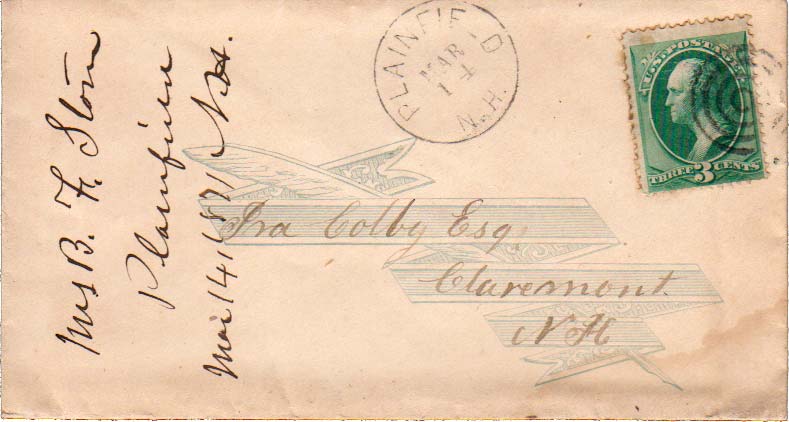 Mrs B. F. Stone
Plainfield
Mar 14, 1871 N.H.
PLAINFIELD
MAR
14
N.H.
U.S. POSTAGE
THREE 3 CENTS
Ira Colby Esq,
Claremont.
N H